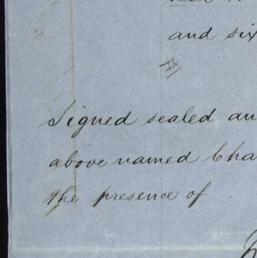 and six
Signed sealed an
above named Cha
the presence of